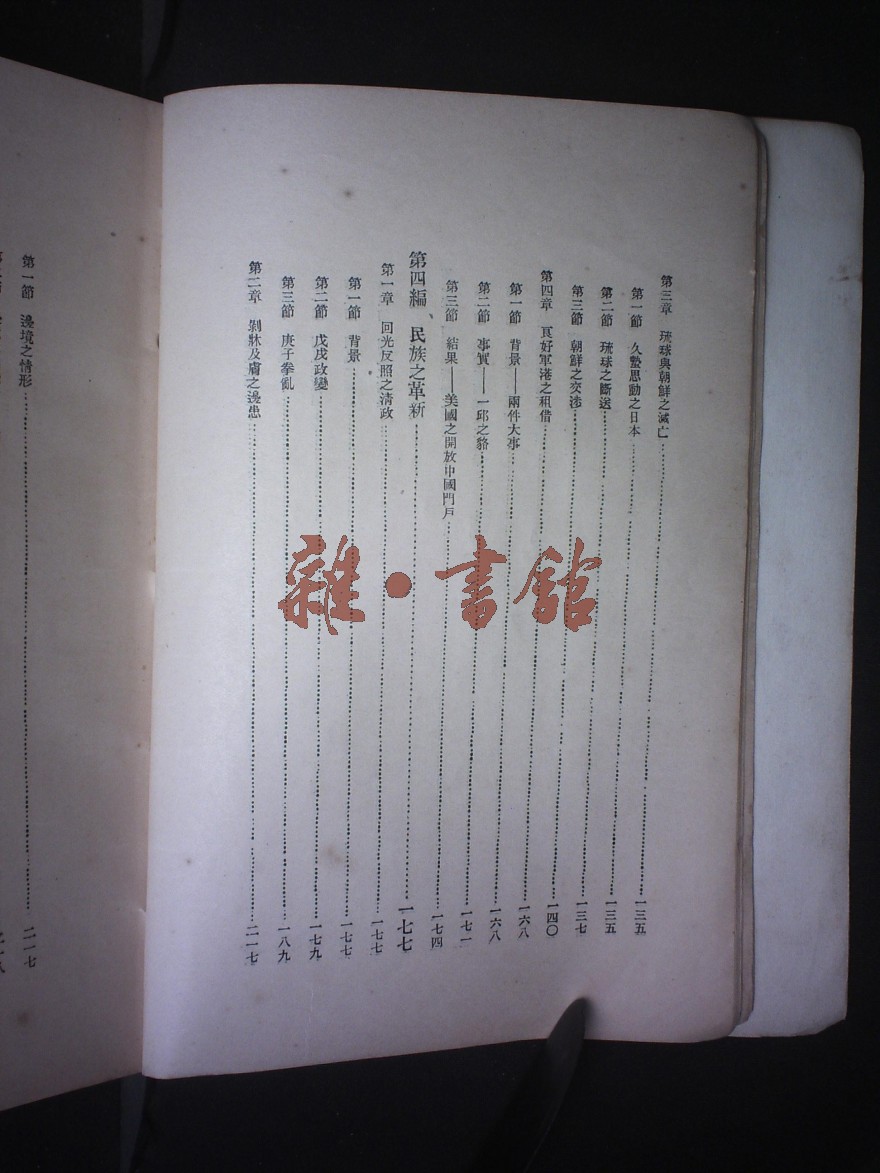 第三章 琉球與朝鮮之滅亡……一三五
第一節 久蟄思動之日本……一三五
第二節 琉球之斷送……一三七
第三節 朝鮮之交涉……一四〇
第四章 良好軍港之租借……一六八
第一節 背景——兩件大事……一六八
第二節 事實——一邱之貉……一七一
第三節 結果——美國之開放中國門戶……一七四
第四編、民族之革新……一七七
第一章 回光反照之清政……一七七
第一節 背景……一七七
第二節 戊戌政變……一七九
第三節 庚子拳亂……一八九
第二章 剝牀及膚之邊患……二一七
第一節 邊境之情形……二一七
雜·書館